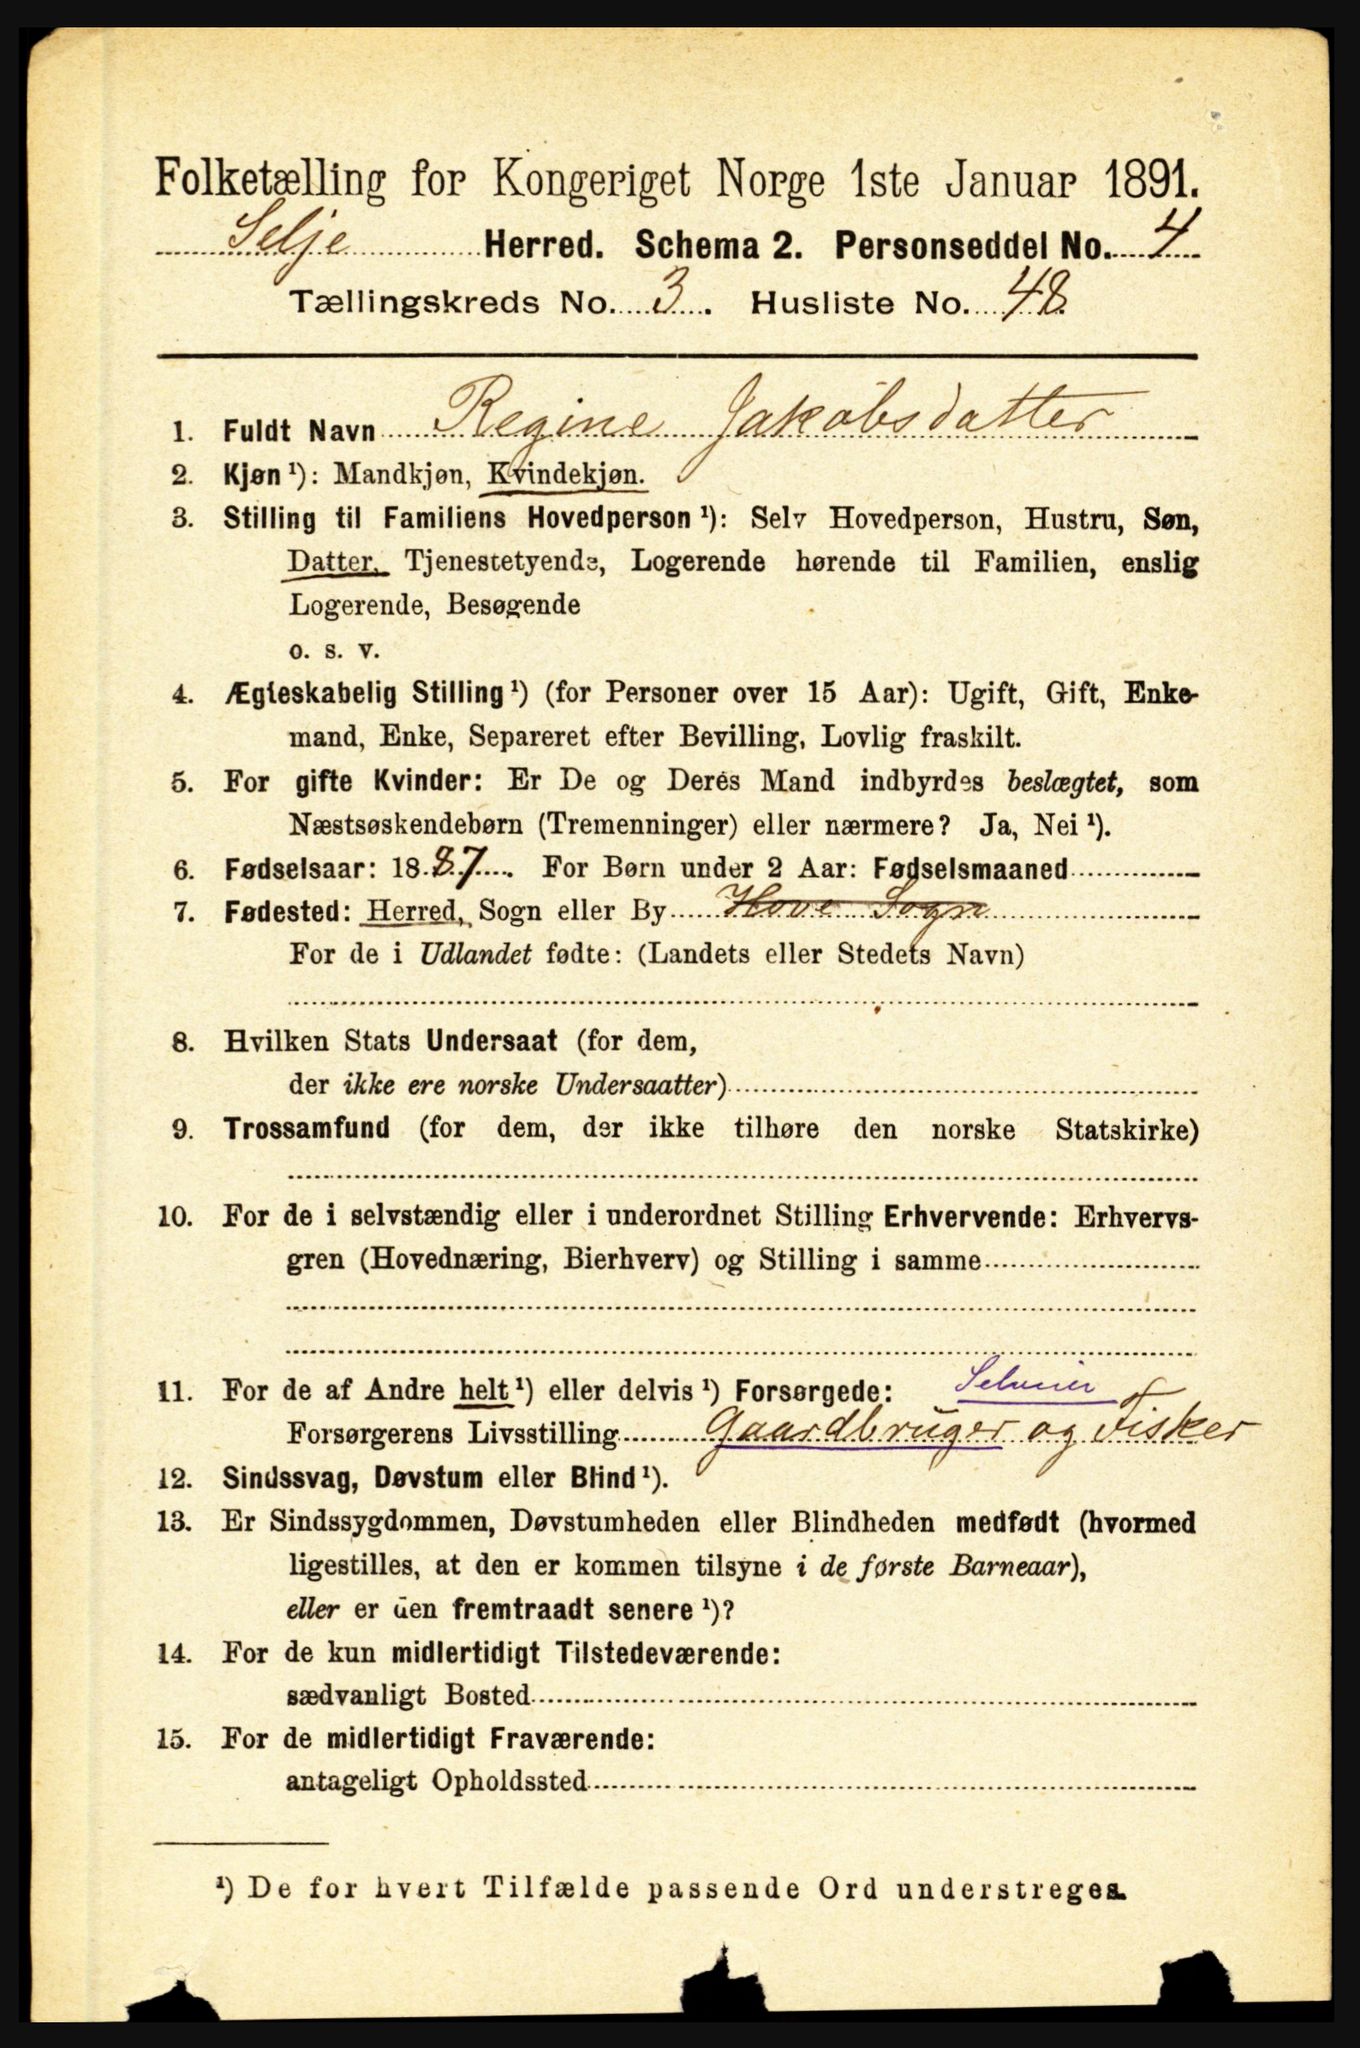 Folketælling for Kongeriget Norge 1ste Januar 1891.
Selje Herred. Schema 2. Personseddel No. 4
Tællingskreds No. 3. Husliste No. 48
1. Fuldt Navn Regine Jakobsdatter
2. Kjøn ¹): Mandkjøn, Kvindekjøn.
3. Stilling til Familiens Hovedperson ¹): Selv Hovedperson, Hustru, Søn,
Datter, Tjenestetyende, Logerende hørende til Familien, enslig
Logerende, Besøgende
o. s. v.
4. Ægteskabelig Stilling ¹) (for Personer over 15 Aar): Ugift, Gift, Enke-
mand, Enke, Separeret efter Bevilling, Lovlig fraskilt.
5. For gifte Kvinder: Er De og Deres Mand indbyrdes beslægtet, som
Næstsøskendebørn (Tremenninger) eller nærmere? Ja, Nei ¹).
6. Fødselsaar: 1887. For Børn under 2 Aar: Fødselsmaaned
7. Fødested: Herred, Sogn eller By Hove Sogn
For de i Udlandet fødte: (Landets eller Stedets Navn)
8. Hvilken Stats Undersaat (for dem,
der ikke ere norske Undersaatter)
9. Trossamfund (for dem, der ikke tilhøre den norske Statskirke)
10. For de i selvstændig eller i underordnet Stilling Erhvervende: Erhvervs-
gren (Hovednæring, Bierhverv) og Stilling i samme
11. For de af Andre helt ¹) eller delvis ¹) Forsørgede: Selveier
Forsørgerens Livsstilling Gaardbruger og Fisker
12. Sindssvag, Døvstum eller Blind ¹).
13. Er Sindssygdommen, Døvstumheden eller Blindheden medfødt (hvormed
ligestilles, at den er kommen tilsyne i de første Barneaar),
eller er den fremtraadt senere ¹)?
14. For de kun midlertidigt Tilstedeværende:
sædvanligt Bosted
15. For de midlertidigt Fraværende:
antageligt Opholdssted
¹) De for hvert Tilfælde passende Ord understreges.